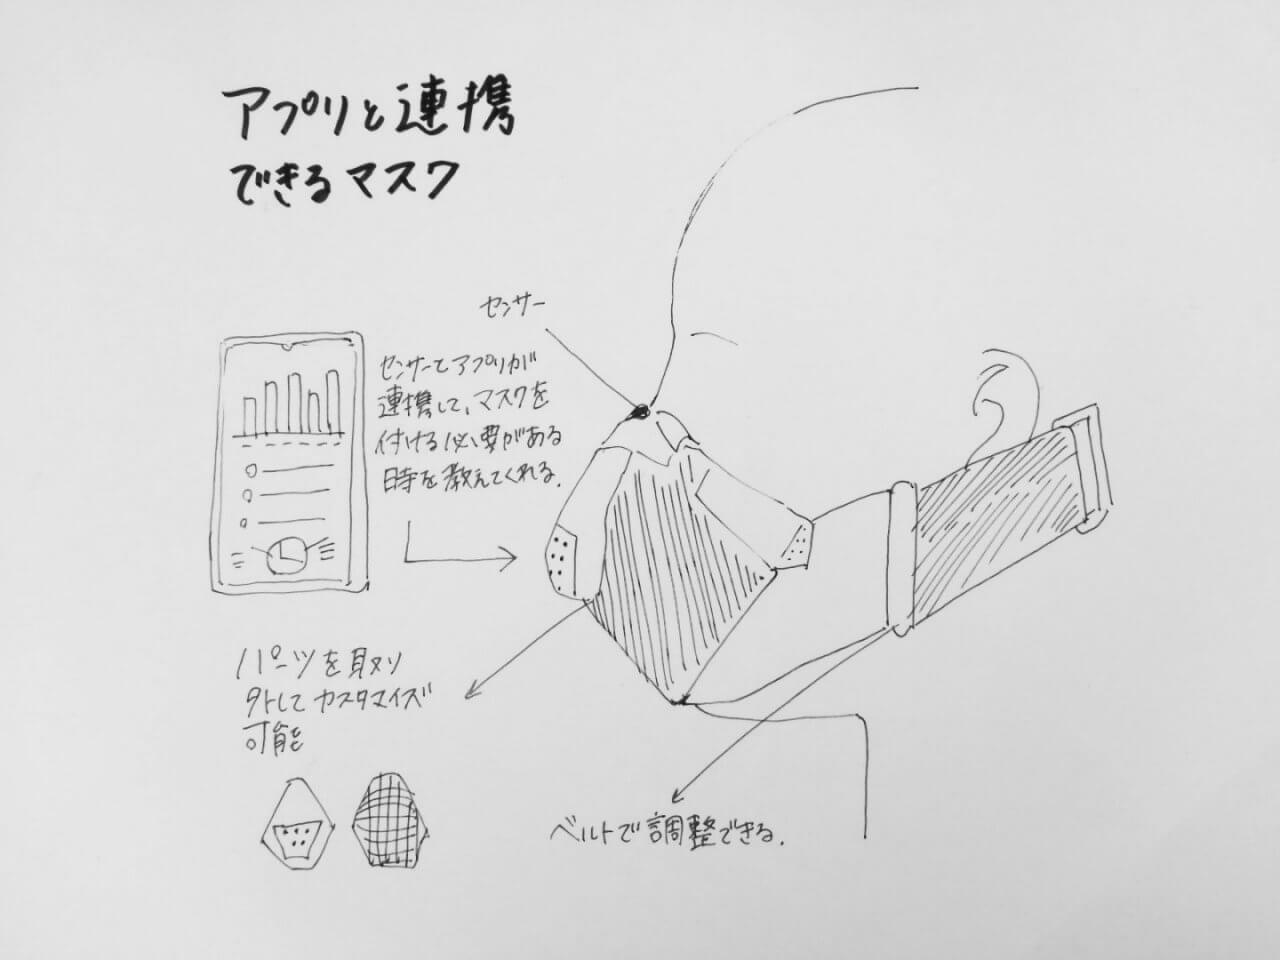 アプリと連携
できるマスク
センサー
センサーとアプリが
連携して、マスクを
付ける必要がある
時を教えてくれる.
パーツを取り
外してカスタマイズ
可能
ベルトで調整できる.